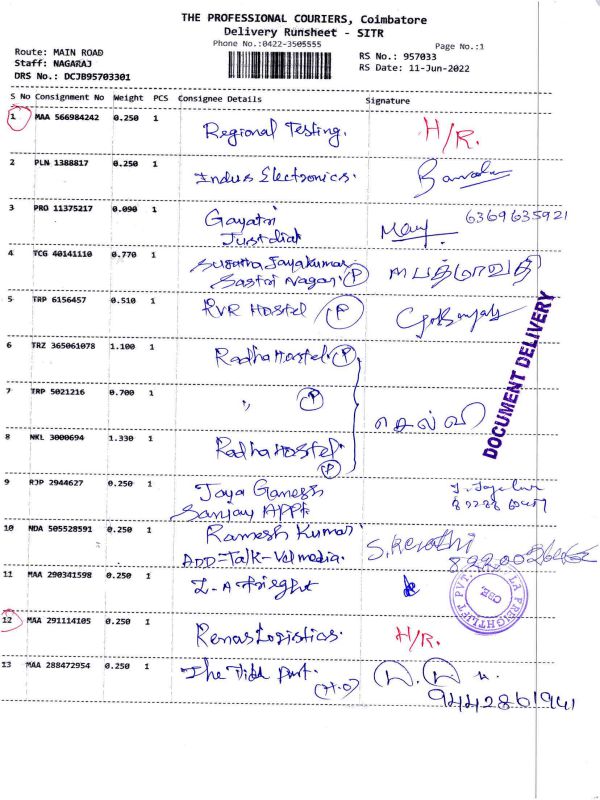 THE PROFESSIONAL COURIERS, Coimbatore
Delivery Runsheet - SITR
Phone No.:0422-3505555
Page No.:1
Route: MAIN ROAD
RS No.: 957033
Staff: NAGARAJ
RS Date: 11-Jun-2022
DRS No.: DCJB95703301
S No Consignment No Weight PCS Consignee Details Signature
1 MAA 566984242 0.250 1 Regional Testing. H/R.
2 PLN 1388817 0.250 1 Indus Electronics.
3 PRO 11375217 0.090 1 Gayatri 6369635921
Justdial
4 TCG 40141110 0.770 1 Sujatha Jayakumar. பத்மாவதி
Sastri Nagar. P
5 TRP 6156457 0.510 1 RVR Hostel P
6 TRZ 365061078 1.100 1 Radha Hostel. P
7 TRP 5021216 0.700 1 " P
செல்வி
8 NKL 3000694 1.330 1 Radha Hostel.
P
DOCUMENT DELIVERY
9 RJP 2944627 0.250 1 Jaya Ganesh
Sanjay APPt.
10 NDA 505528591 0.250 1 Ramesh Kumar.
ADD=Talk-Velmedia.
11 MAA 290341598 0.250 1 L-A Frieght
LA FREIGHTLIFT PVT. CBE.
12 MAA 291114105 0.250 1 Renas Logistics. H/R.
13 MAA 288472954 0.250 1 The
(H.O)
9442861941